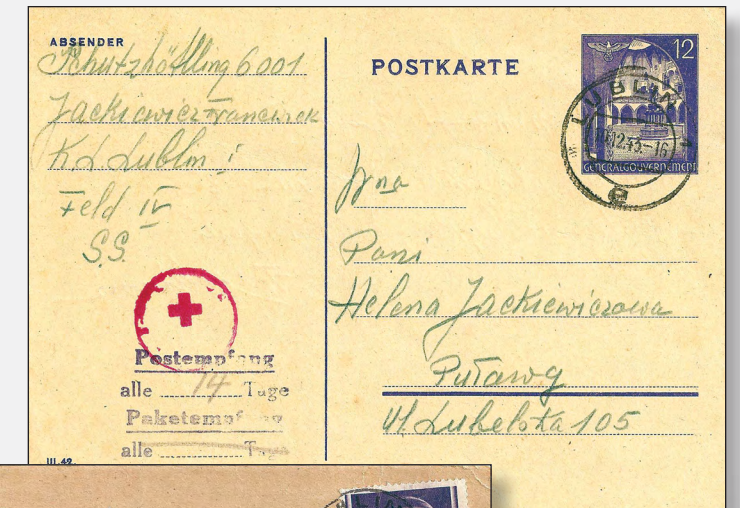 ABSENDER
Schutzhäftling 6001
Jackiewicz Franciszek
K.L. Lublin
Feld IV
S.S.
Postempfang
alle 14 Tage
Paketempfang
alle Tage
III.42.
POSTKARTE
12
GENERALGOUVERNEMENT
LUBLIN
e
Pani
Helena Jackiewiczowa
Puławy
Ul. Lubelska 105